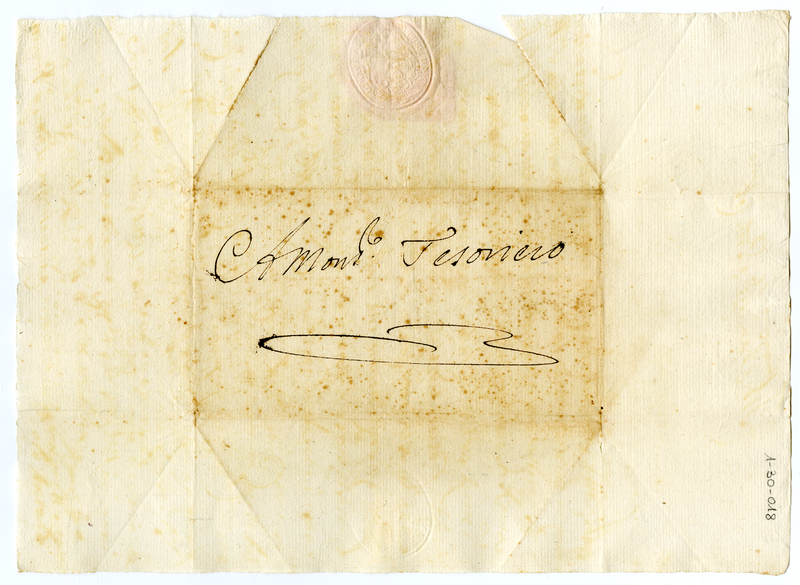 A Mons.r Tesoriero
1-30-018